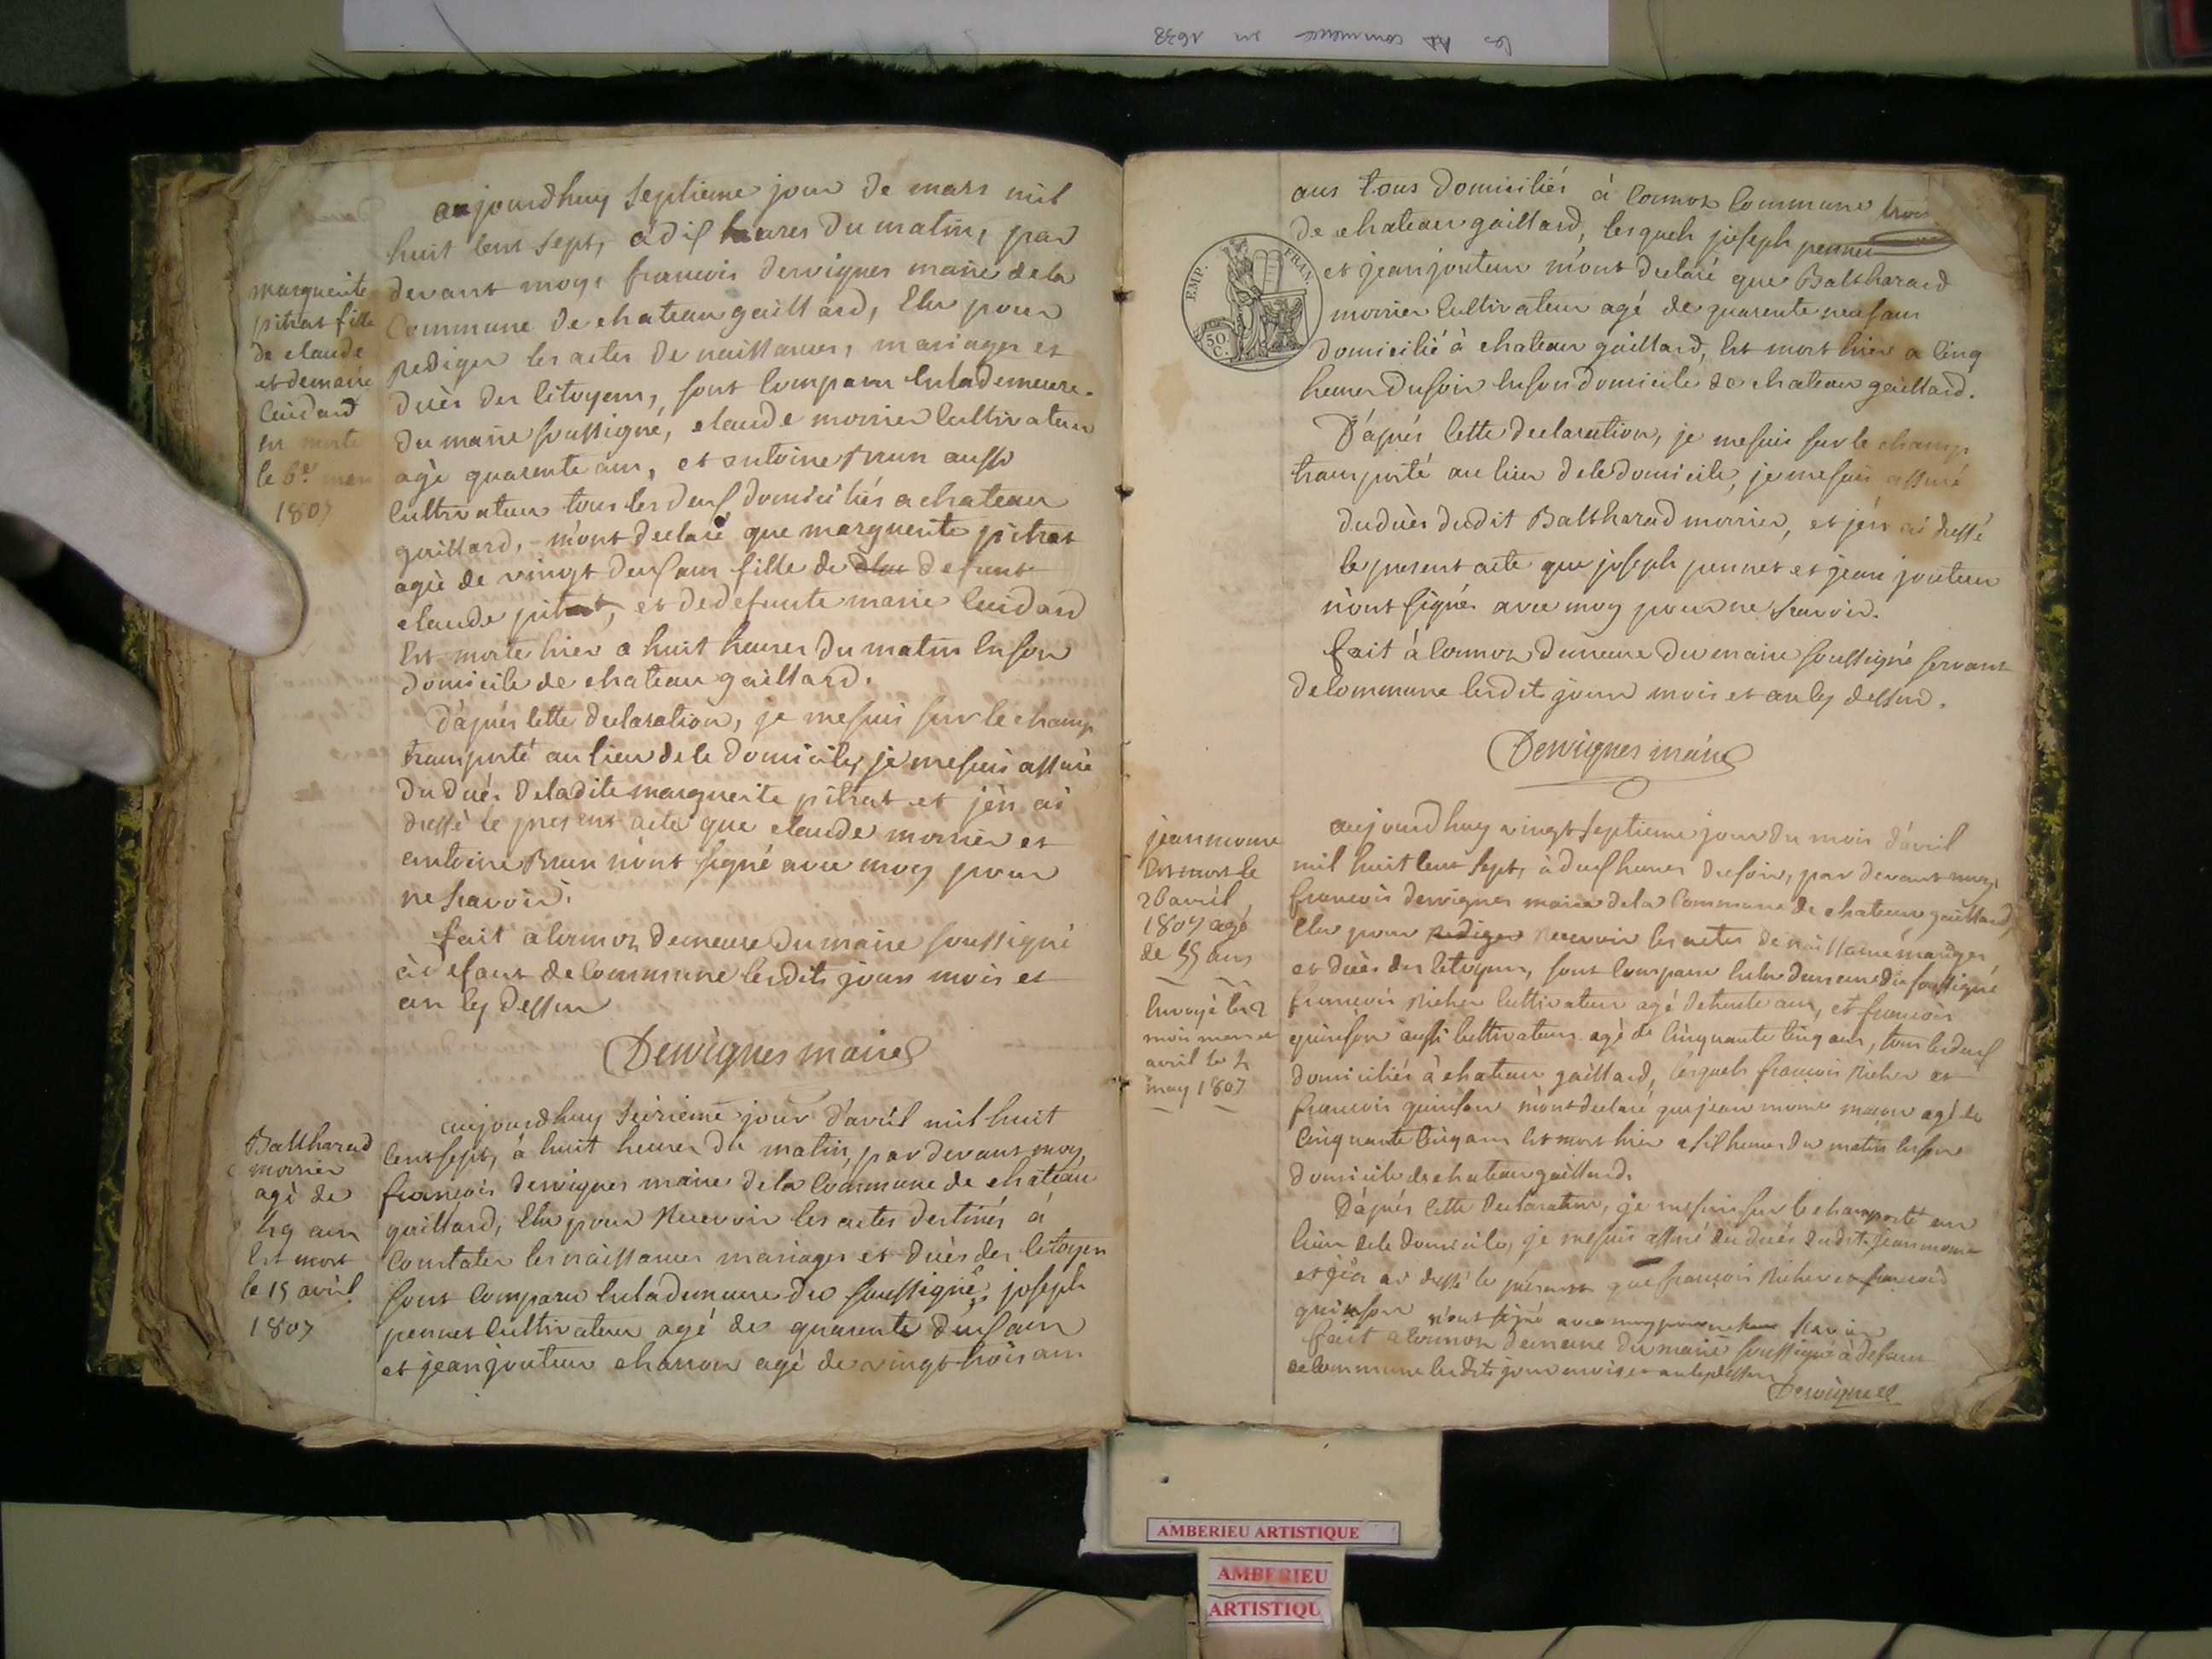 les commence en 1638
aujourdhuy septieme jour de mars mil
huit cent sept, à dix heures du matin, par
devant moy, francois dervignes maire de la
Commune de chateau gaillard, Elu pour
Rediger les actes de naissances, mariages et
ducès des Citoyens, sont Comparu En la demeure
du maire soussigné, claude morrier Cultivateur
agé quarente ans, et antoine brun aussi
Cultivateur tous les deux domiciliés a chateau
gaillard, m'ont declaré que marguerite pitrat
agée de vingt deux ans fille de defunt
claude pitrat, et de defunte marie Cuidard
Est morte hier a huit heures du matin En son
domicile de chateau gaillard.
D'après Cette declaration, je me suis sur le champ
transporté au lieu de le domicile, je me suis assuré
du ducés de ladite marguerite pitrat et j'en ai
dressé le present acte que claude morrier et
antoine Brun n'ont signé avec moy pour
ne scavoir.
fait a Cormoz demeure du maire soussigné
à defaut de Commune lesdits jours mois et
an Cy dessus
Dervignes maire
marguerite
pitrat fille
de claude
et de marie
Cuidard
est morte
le 6e mars
1807
aujourdhuy seizieme jour d'avril mil huit
Cent sept, à huit heures du matin, par devant moy,
françois dervignes maire de la Commune de chateau
gaillard, Elu pour Recevoir les actes destinés à
Constater les naissances mariages et ducès des Citoyen
sont Comparu En la demeure du soussigné, joseph
pennet Cultivateur agé de quarente deux ans
et jean jouteur charron agé de vingt trois ans
Balthazard
morrier
agé de
49 ans
Est mort
le 15 avril
1807
ans tous domiciliés à Cormoz Commune
de chateau gaillard, lesquels joseph pennet
et jean jouteur m'ont declaré que Balthazard
morrier Cultivateur agé de quarente neuf ans
domicilié à chateau gaillard, Est mort hier a Cinq
heures du soir En son domicile de chateau gaillard.
EMP. FRAN.
50 C.
D'après Cette declaration, je me suis sur le champ
transporté au lieu de le domicile, je me suis assuré
du ducès dudit Balthazard morrier, et j'en ai dressé
le present acte que joseph pennet et jean jouteur
n'ont signé avec moy pour ne scavoir.
fait à Cormoz demeure du maire soussigné servant
de Commune lesdits jour mois et an Cy dessus.
Dervignes maire
aujourdhuy vingt septieme jour du mois d'avril
mil huit Cent sept, à deux heures du soir, par devant moy,
francois dervignes maire de la Commune de chateau gaillard,
Elu pour rediger Recevoir les actes de naissance mariages
et ducès des Citoyens, sont Comparu En la demeure du soussigné
francois Richer Cultivateur agé de trente ans, et francois
quinson aussi Cultivateur agé de Cinquante Cinq ans, tous les deux
domiciliés à chateau gaillard, lesquels francois Richer et
francois quinson m'ont declaré que jean moine macon agé de
Cinquante Cinq ans Est mort hier a six heures du matin En son
domicile de chateau gaillard.
D'après Cette declaration, je me suis sur le champ porté au
lieu de le domicile, je me suis assuré du ducés dudit jean moine
et j'en ai dressé le present que françois Richer et francois
quinson n'ont signé avec moy pour ne scavoir
fait a Cormoz demeure du maire soussigné à defaut
de Commune lesdits jour mois et an Cy dessus
Dervignes
jean moine
Est mort le
26 avril
1807 agé
de 55 ans
Envoyé les 2
mois mars et
avril le 2
may 1807
AMBERIEU ARTISTIQUE
AMBERIEU
ARTISTIQU